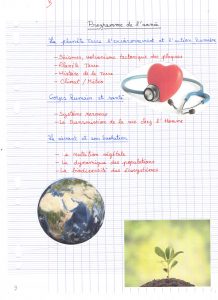 Programme de l'année
La planète Terre l'environnement et l'action humaine
- Séismes, volcanisme tectonique des plaques
- Planète Terre
- Histoire de la Terre
- Climat / Météo
Corps humain et santé
- Système nerveux
- La transmission de la vie chez l'Homme
Le vivant et son évolution
- La nutrition végétale
- La dynamique des populations
- La biodiversité des écosystèmes